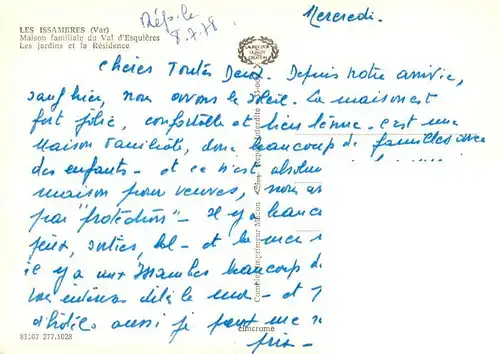 LES ISSAMBRES (Var)
Maison familiale du Val d'Esquières
Les jardins et la Résidence
Rép. le
8.7.78
Mercredi.
Chères Toutes Deux. Depuis notre arrivée,
sauf hier, nous avons le soleil. La maison est
fort jolie, confortable et bien tenue. C'est une
Maison Familiale, donc beaucoup de familles avec
des enfants - et ce n'est absolum
maison pour veuves, nous
par "protection" - Il y a beauc
jeux, sorties, bal - et la mer
il y a aux Issambres beaucoup d
et
d'hôtels aussi je
pris -
Combier Imprimeur Mâcon
cimcrome
83107 277.1028